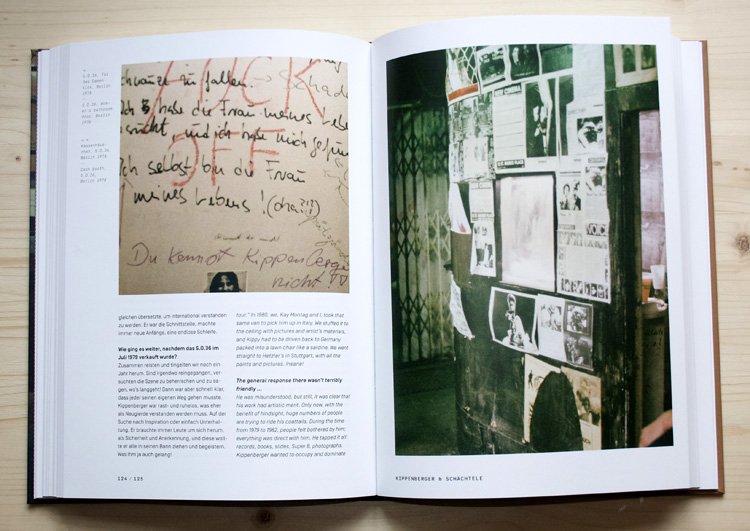 S.O.36,
Berlin
1978
S.O.36,
Berlin 1978
Berlin 1978
S.O.36,
Berlin 1978
FUCK
OFF
schwänze zu fallen.
Ich habe die Frau meines Lebe
und ich habe mich
Ich selbst bin die Frau
meines Lebens!
Du kennst Kippenberger
nicht
gleichen übersetzte, um international verstanden
zu werden. Er war die Schnittstelle, machte
immer neue Anfänge, eine endlose Schleife.
Wie ging es weiter, nachdem das S.O.36 im
Juli 1979 verkauft wurde?
Zusammen reisten und tingelten wir noch ein
Jahr herum. Sind irgendwo reingegangen, ver-
suchten die Szene zu beherrschen und zu sa-
gen, wo's langgeht! Dann war aber schnell klar,
dass jeder seinen eigenen Weg gehen musste.
Kippenberger war rast- und ruhelos, was eher
als Neugierde verstanden werden muss. Auf der
Suche nach Inspiration oder einfach Unterhal-
tung. Er brauchte immer Leute um sich herum,
als Sicherheit und Anerkennung, und diese woll-
te er alle in seinen Bann ziehen und begeistern.
Was ihm ja auch gelang!
tour." In 1980, we, Kay Montag and I, took that
same van to pick him up in Italy. We stuffed it to
the ceiling with pictures and artist's materials,
and Kippy had to be driven back to Germany
packed into a lawn chair like a sardine. We went
straight to Hetzler's in Stuttgart, with all the
paints and pictures. Insane!
The general response there wasn't terribly
friendly ...
He was misunderstood, but still, it was clear that
his work had artistic merit. Only now, with the
benefit of hindsight, huge numbers of people
are trying to ride his coattails. During the time
from 1979 to 1982, people felt bothered by him;
everything was direct with him. He tapped it all:
records, books, slides, Super 8, photographs.
Kippenberger wanted to occupy and dominate
124 / 125
NEW CINEMA
KIPPENBERGER & SCHÄCHTELE